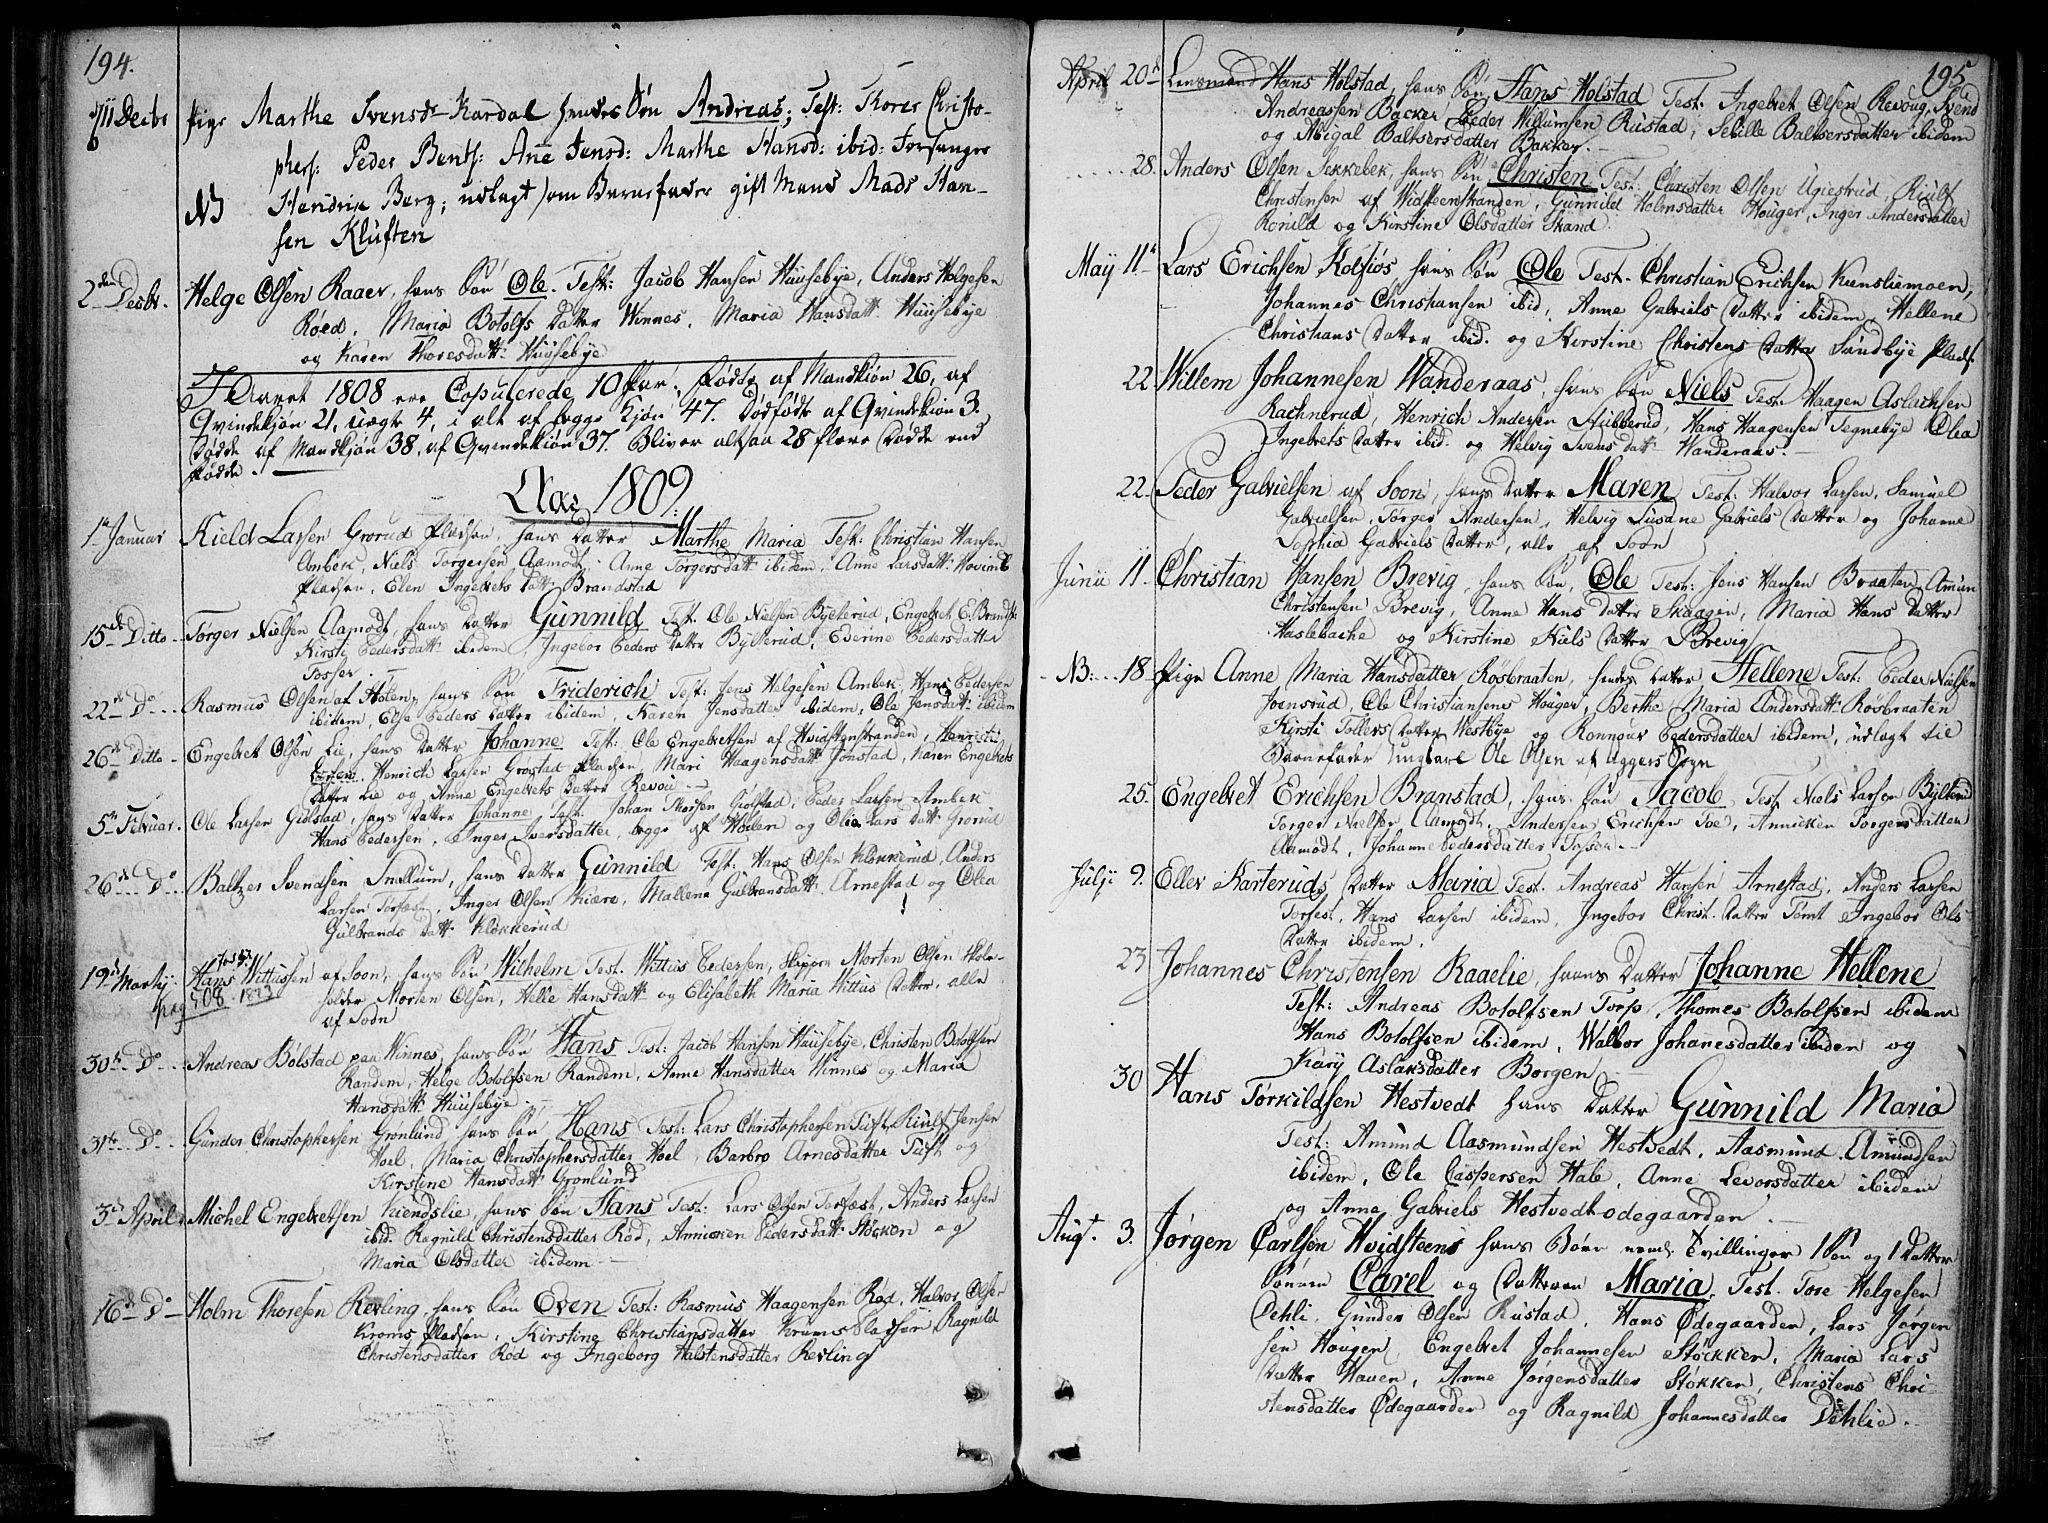 194.
11 Decbr Pige Marthe Svensdr Kardal hendes Søn Andreas; Test: Thorer Christo-
phers: Peder Bents: Anne Jensd: Marthe Hansd: ibid: Forsanger
NB Hendrik Berg; udlagt som Barnefader gift Mand Mads Han-
sen Kluften
2den Decbr. Helge Olsen Raaer, hans Søn Ole. Test: Jacob Hansen Huusebye, Anders Helgesen
Røed, Maria Botolfs Datter Winnes, Maria Hansdatt: Huusebye
og Karen Thoresdatt: Huusebye
I Aaret 1808 ere Copulerede 10 Par: Fødte af Mandkiøn 26, af
Qvindekiøn 21, uægte 4, i alt af begge Kiøn 47. Dødfødte af Qvindekiøn 3.
Dødde af Mandkiøn 38, af Qvindekiøn 37. Bliver altsaa 28 flere Dødde end
fødde.
Aar 1809.
1te Januar Kield Larsen Grorud Pladsen, hans Datter Marthe Maria Test: Christian Hansen
Ambek, Niels Torgersen Aamodt, Anne Torgersdatt: ibidem, Anne Larsdatt: Hovind
Pladsen, Elen Ingebrets Datt: Brandstad
15de Ditto Tørger Nielsen Aamodt, hans Datter Gunnild Test: Ole Nielsen Bylterud, Engebret E. Brandst:
Kirsti Pedersdatt: ibidem, Ingebor Peders Datter Bylterud, Ederine Pedersdatter
Tosser.
22de Do Rasmus Olsen af Holen, hans Søn Friderich Test: Jens Helgesen Ambek, Hans Pedersen
ibidem, Else Peders Datter ibidem, Karen Jensdatter ibidem, Ole Jensdatt: ibidem
26de Ditto Engebret Olsen Lie, hans Datter Johanne Test: Ole Engebretsen af Hvidstenstranden, Henrich
Larsen Henrich Larsen Grøstad Pladsen, Mari Haagensdatt: Jonstad, Karen Engebrets
Datter Lie og Anne Engebrets Datter Revou
5te Februar. Ole Larsen Gidlstad, hans Datter Johanne Test: Johan Thorsen Gidlstad, Peder Larsen Ambek
Hans Pedersen, Inger Iversdatter begge af Holen og Olia Lars Datt: Grorud
26de Do Baltzer Svendsen Snellum, hans Datter Gunnild Test: Hans Olsen Klokkerud, Anders
Larsen Torfæst, Inger Olsen Kiære, Mallena Gulbransdatt: Arnestad og Olea
Gulbrands Datt: Klokkerud
19de Martij Hans Wittussen af Soon, hans Søn Wilhelm Test. Wittus Pedersen, Skipper Morten Olsen Thole-
pag 408 1823 folder Morten Olsen, Helle Hansdatt: og Elisabeth Maria Wittus Datter, alle
af Soon
30te Do Andreas Bølstad paa Winnes, hans Søn Hans Test: Jacob Hansen Huusebye, Christen Botolfsen
Randem, Helge Botolfsen Randem, Anne Hansdatter Winnes og Maria
Hansdatt: Huusebye.
31te Do Gunder Christophersen Grønlund, hans Søn Hans Test: Lars Christophersen Tuft, Riulf Jensen
Hoel, Maria Christophersdatter Hoel, Barbro Arnesdatter Tuft og
Kirstine Hansdatt: Grønlund
3de April Michel Engebretsen Kiendslie, hans Søn Hans Test: Lars Olsen Torfæst, Anders Larsen
ibid. Ragnild Christensdatter Rød, Annicken Pedersdatt: Støcken og
Maria Olsdatter ibidem
16de Do Holm Thoresen Revling, hans Søn Even Test: Rasmus Haagensen Rød, Halvor Olsen
Kroms Pladsen, Kirstine Christiansdatter Krums Pladsen, Ragnild
Christensdatter Rød og Ingeborg Halstensdatter Revling
195
April 20de Lensmand Hans Holstad, hans Søn Hans Holstad Test: Ingebret Olsen Revoug, Svend
Andreassen Backer, Peder Willumsen Rustad, Sebille Baltsersdatter ibidem
og Abigal Baltsersdatter Bakker.
28. Anders Olsen Sekkebek, hans Søn Christen Test: Christen Olsen Ugiestrud, Riulf
Christensen af Widsteenstranden, Gunnild Holmsdatter Houger, Inger Andersdatter
Ronild og Kirstine Olsdatter Skand.
Maij 11te Lars Erichsen Kolsiøs hans Søn Ole Test. Christian Erichsen Kiensliemoen,
Johannes Christiansen ibid, Anne Gabriels Datter ibidem, Hellene
Christians Datter ibid. og Kirstine Christens Datter Sundbye Plads.
22 Willem Johannesen Wanderaas, hans Søn Niels Test: Haagen Aslachsen
Rachnerud, Henrich Andersen Stubberud, Hans Haagensen Tegnebye Olea
Ingebrets Datter ibid. og Helvig Svens Datt: Wanderaas.
22. Peder Gabrielsen af Soon, hans Datter Maren Test: Halvor Larsen, Samuel
Gabrielsen, Tørger Andersen, Helvig Susane Gabriels Datter og Johanne
Sophia Gabriels Datter, alle af Soon
Junii 11. Christian Hansen Brevig, hans Søn, Ole Test: Jens Hansen Braaten, Amun
Christensen Brevig, Anne Hans Datter Skaagen, Maria Hans Datter
Haslebache og Kirstine Kiels Datter Brevig
NB: 18. Pige Anne Maria Hansdatter Røsbraaten, hendes Datter Hellene Test: Peder Nielsen
Joensrud, Ole Christiansens Houger, Berthe Maria Andersdatt: Røsbraaten
Kirsti Tollefs Datter Westbye og Ronnoug Pedersdatter ibidem, udlagt til
Barnefader Ungkarl Ole Olsen af Aggers Sogn
25. Engebret Erichsen Branstad, hans Søn Jacob Test. Niels Larsen Bylterud
Torger Nielsen Aamodt, Andersen Erichsen Toe, Annicken Torgersdatter
Aamodt, Johanne Pedersdatter Tosser
Julji 9. Ellev Karteruds Datter Maria Test. Andreas Hansen Arnestad, Anders Larsen
Torfest, Hans Larsen ibidem, Ingebor Christ. Datter Tømt Ingebor Ols
Datter ibidem.
23 Johannes Christensen Raaelie, hans Datter Johanne Hellene
Test: Andreas Botolfsen Torp, Thomes Botolfsen ibidem
Hans Botolfsen ibidem, Walbor Johanesdatter ibidem og
Kary Aslaksdatter Borgen
30 Hans Tørkildsen Hestvedt hans Datter Gunnild Maria
Test: Amund Aasmundsen Hestvedt, Aasmund Amundsen
ibidem, Ole Caspersen Hale, Anne Levorsdatter ibidem
og Anne Gabriels Hestvedtodegaarden.
Augt. 3. Jørgen Carlsen Hvidsteens hans Børn neml: Tvillinger 1 Søn og 1 Datter
Sønnen Carel og Datteren Maria, Test. Tore Helgesen
Dehli, Gunder Olsen Rustad, Hans Ødegaarden, Lars Jørgen
sen Hougen, Engebret Johannesen Støkken, Maria Lars
Datter Hauen, Anne Jørgensdatter Støkken, Christens Chri-
stensdatter Ødegaarden og Ragnild Johannesdatter Dehlie.